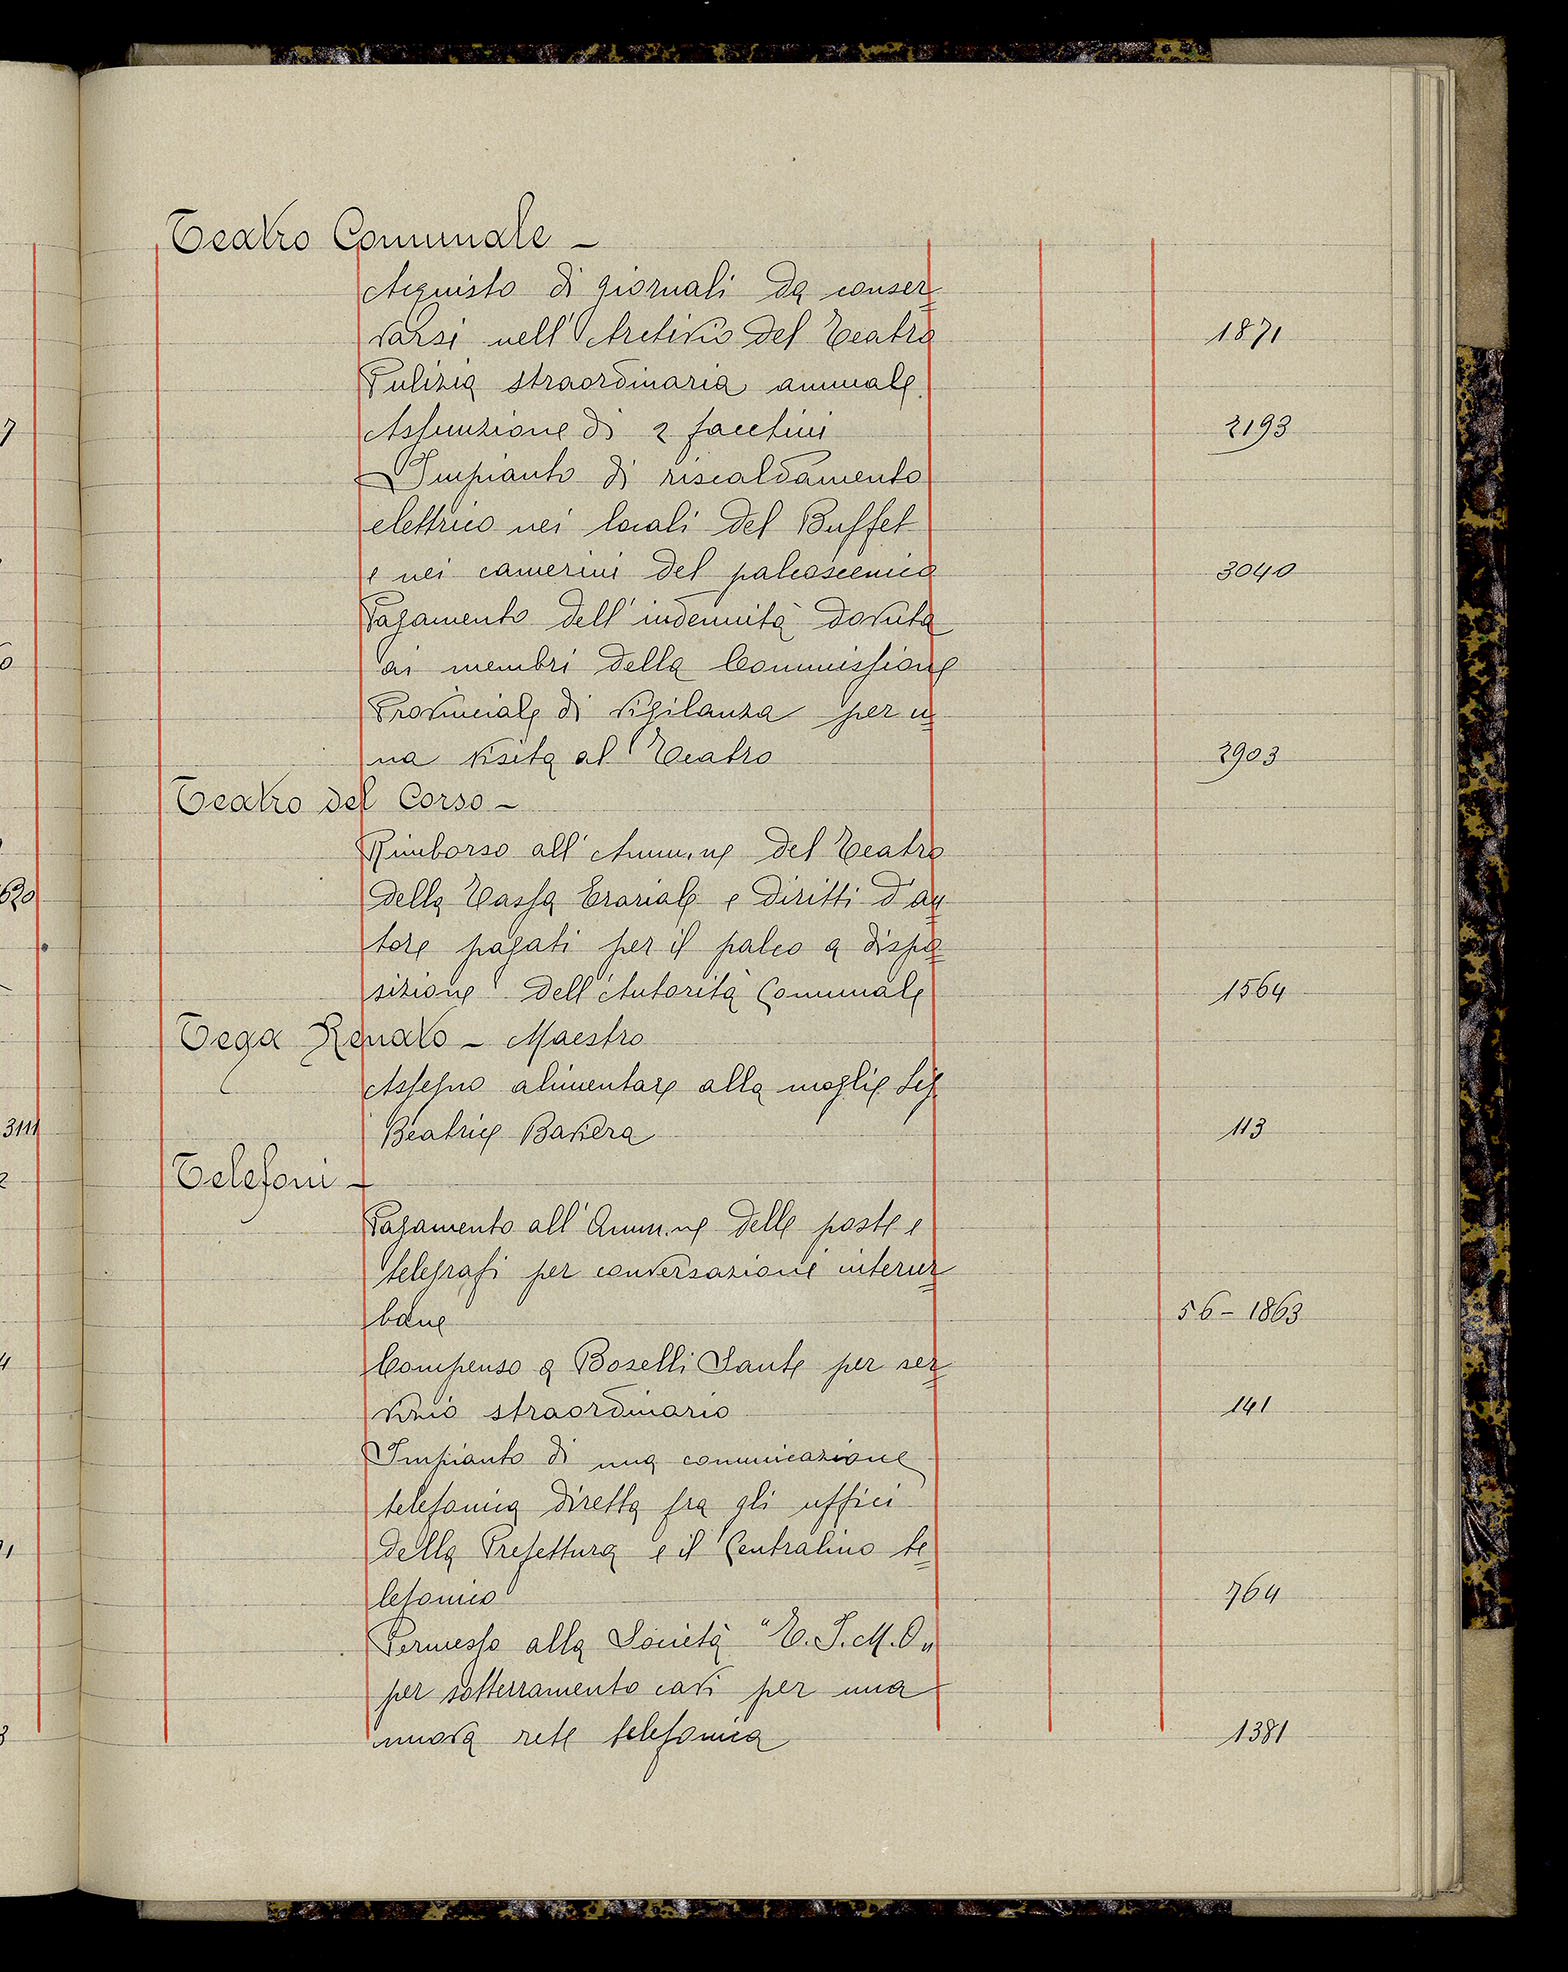 Teatro Comunale –
Acquisto di giornali da conser=
varsi nell'Archivio del Teatro 1871
Pulizia straordinaria annuale.
Assunzione di 2 facchini 2193
Impianto di riscaldamento
elettrico nei locali del Buffet
e nei camerini del palcoscenico 3040
Pagamento dell'indennità dovuta
ai membri della Commissione
Provinciale di vigilanza per u=
na visita al Teatro 2903
Teatro del Corso –
Rimborso all'Amm.ne del Teatro
della Tassa Erariale e diritti d'au=
tore pagati per il palco a dispo=
sizione dell'Autorità Comunale 1564
Tega Renato – Maestro
Assegno alimentare alla moglie Sig.
Beatrice Baviera 113
Telefoni –
Pagamento all'Amm.ne delle poste e
telegrafi per conversazioni interur=
bane 56 – 1863
Compenso a Boselli Sante per ser=
vizio straordinario 141
Impianto di una comunicazione
telefonica diretta fra gli uffici
della Prefettura e il Centralino te=
lefonico 764
Permesso alla Società "T.I.M.O"
per sotterramento cavi per una
nuova rete telefonica 1381
7
0
620
3111
2
4
1
3